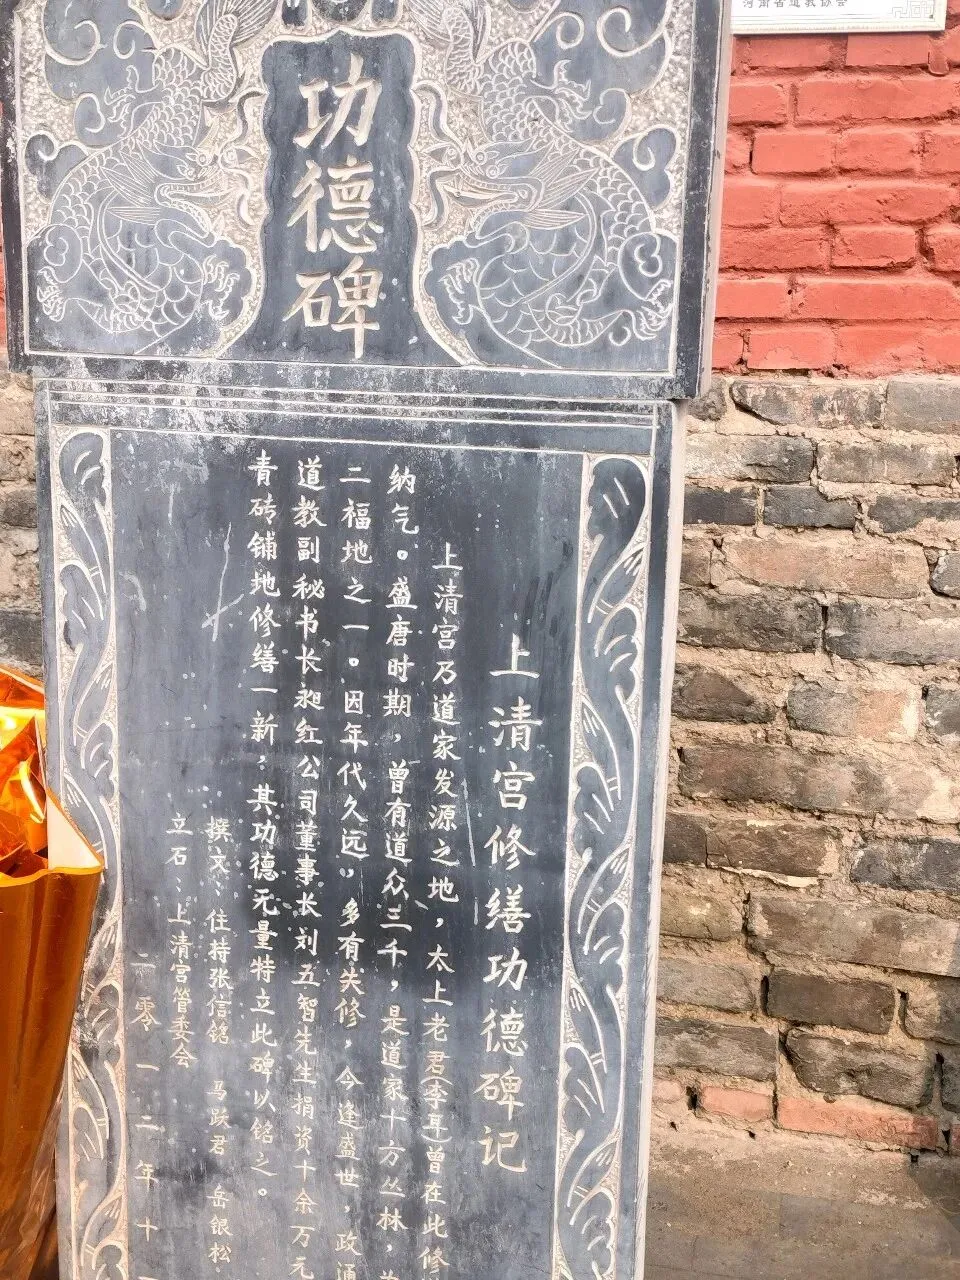 河南省道教协会
功德碑
上清宫修缮功德碑记
上清宫乃道家发源之地，太上老君（李耳）曾在此修
纳气。盛唐时期，曾有道众三千，是道家十方丛林，
二福地之一。因年代久远，多有失修，今逢盛世，政通
道教副秘书长昶红公司董事长刘五智先生捐资十余万元
青砖铺地修缮一新，其功德无量特立此碑以铭之。
撰文：住持张信铭 马跃君 岳银松
立石：上清宫管委会
二零一二年十一